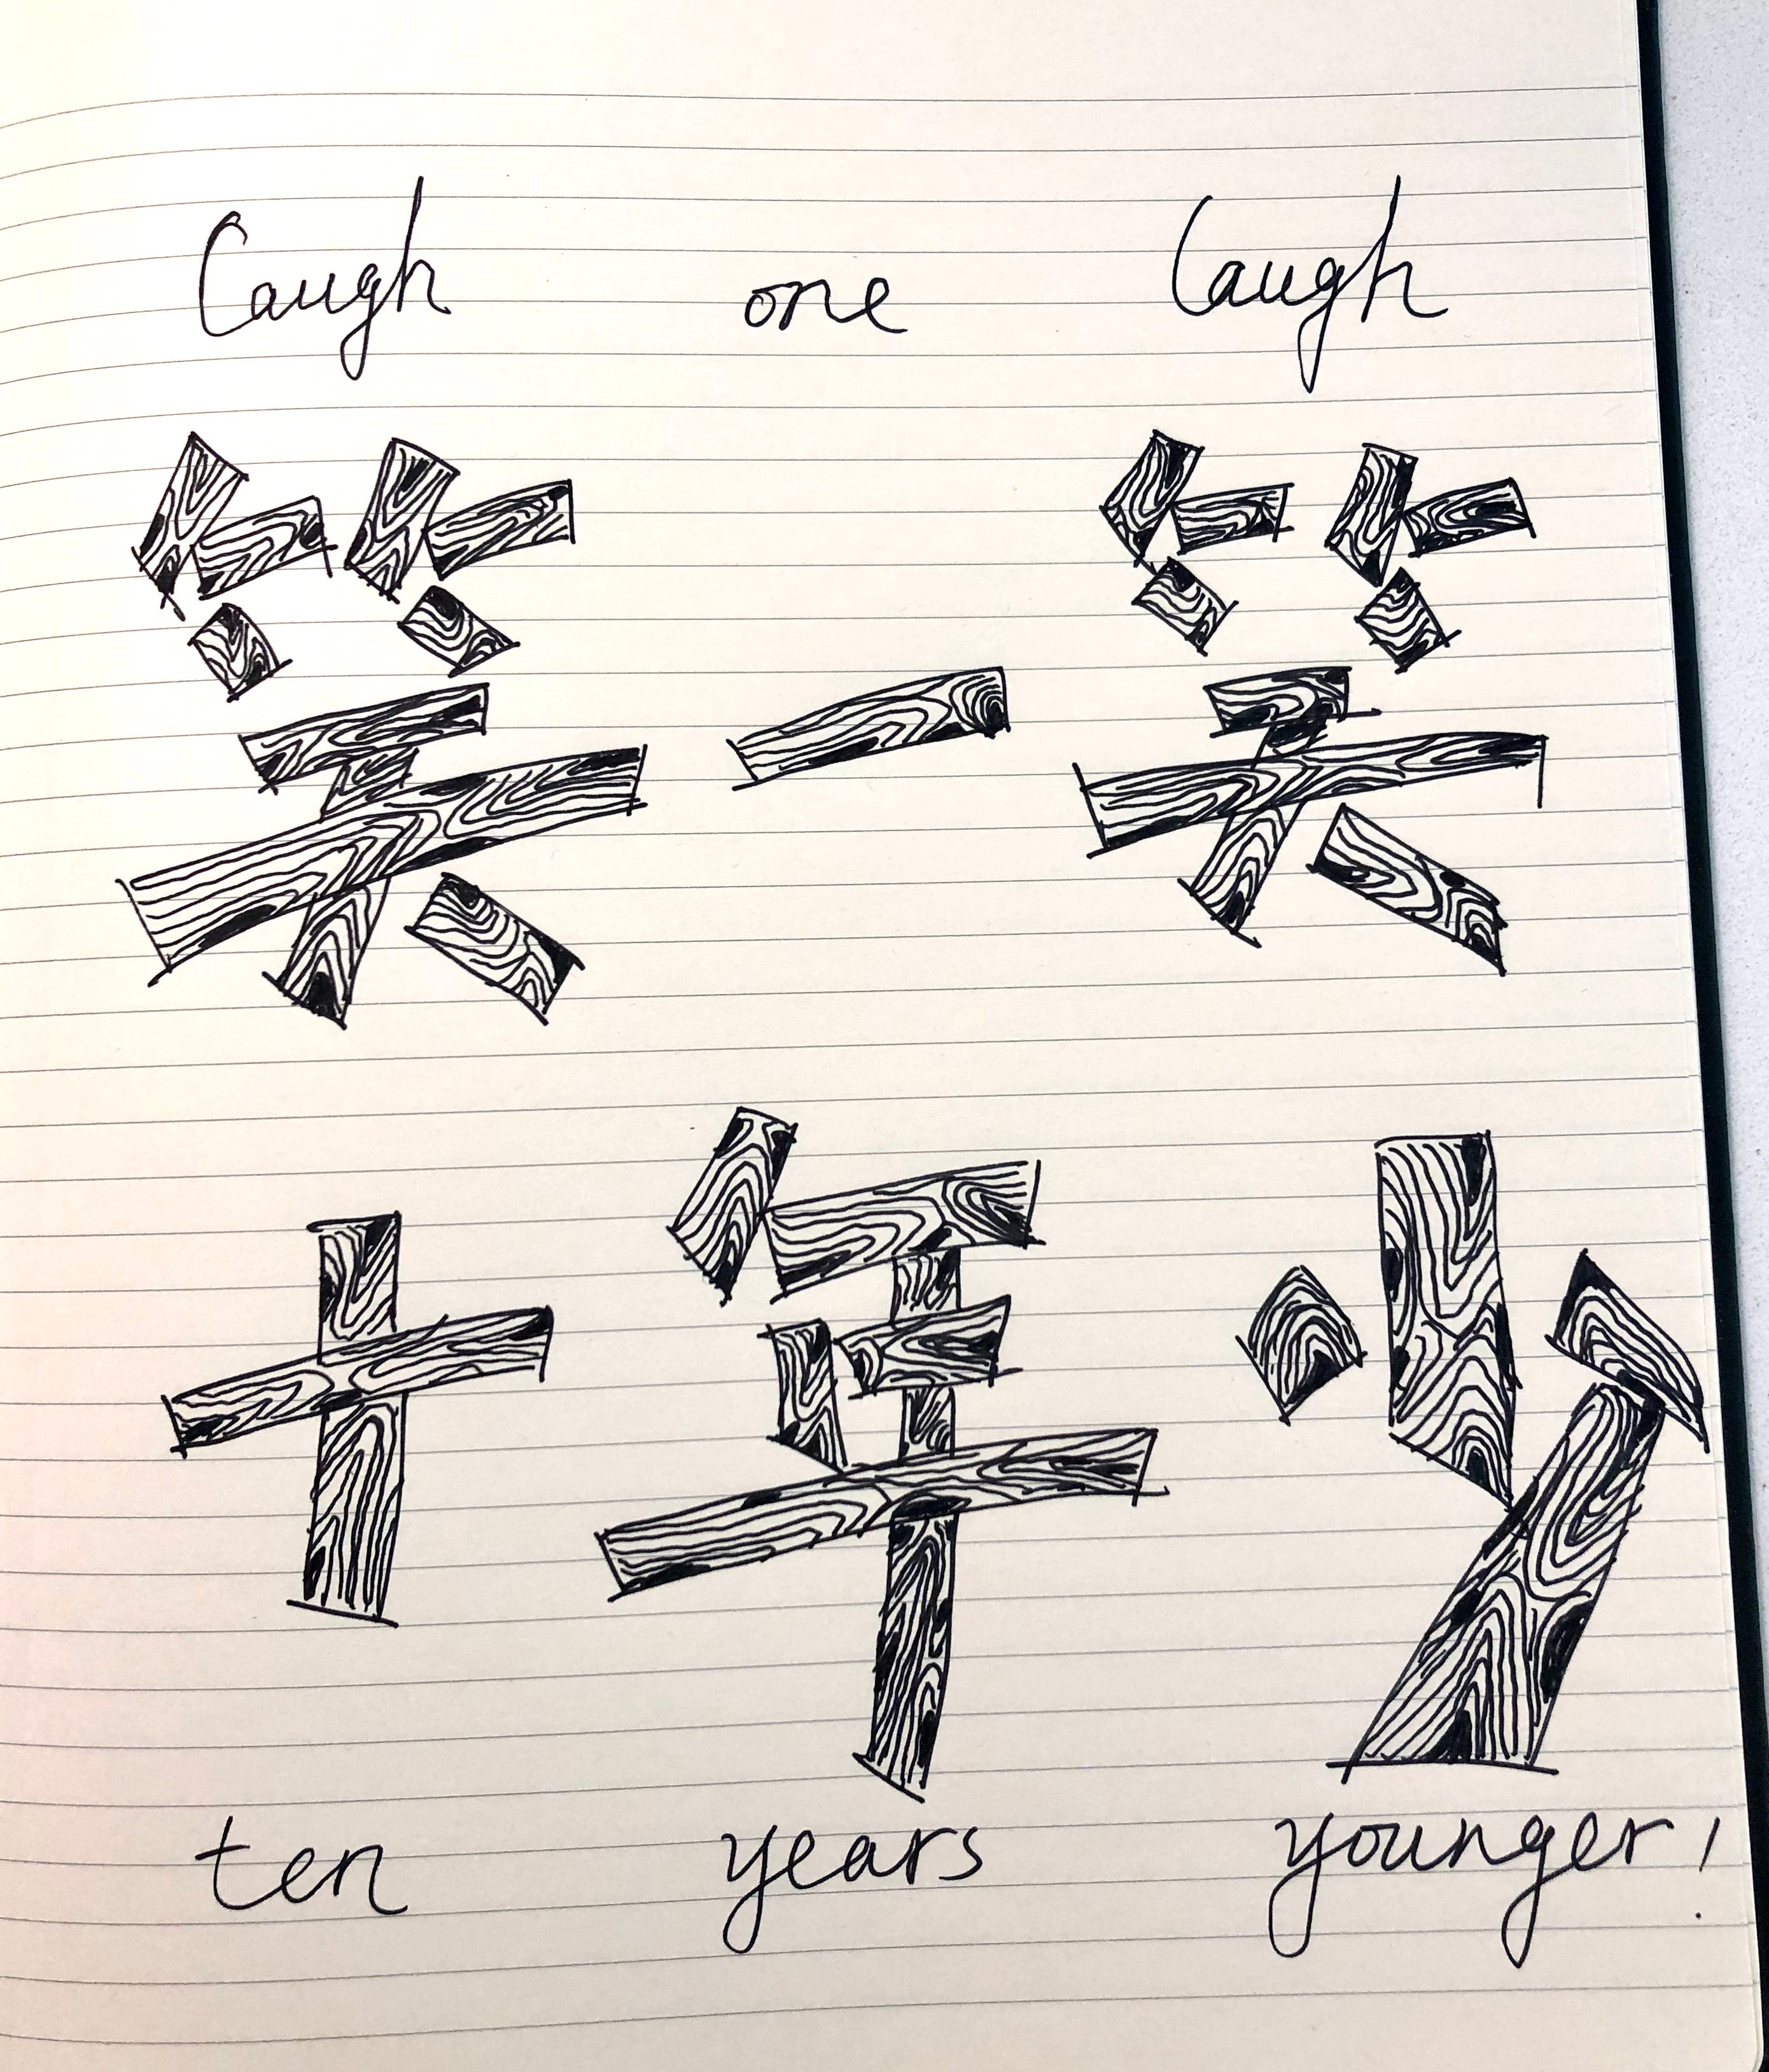 Laugh one Laugh
笑一笑
十年少
ten years younger!